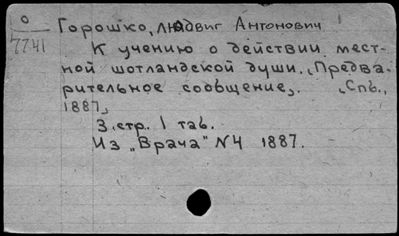 О
7741
Горошко, Людвиг Антонович
К учению о действии мест-
ной шотландской души. (Предва-
рительное сообщение). (Спб.,
1887)
3 стр. 1 таб.
Из „Врача" N4 1887.